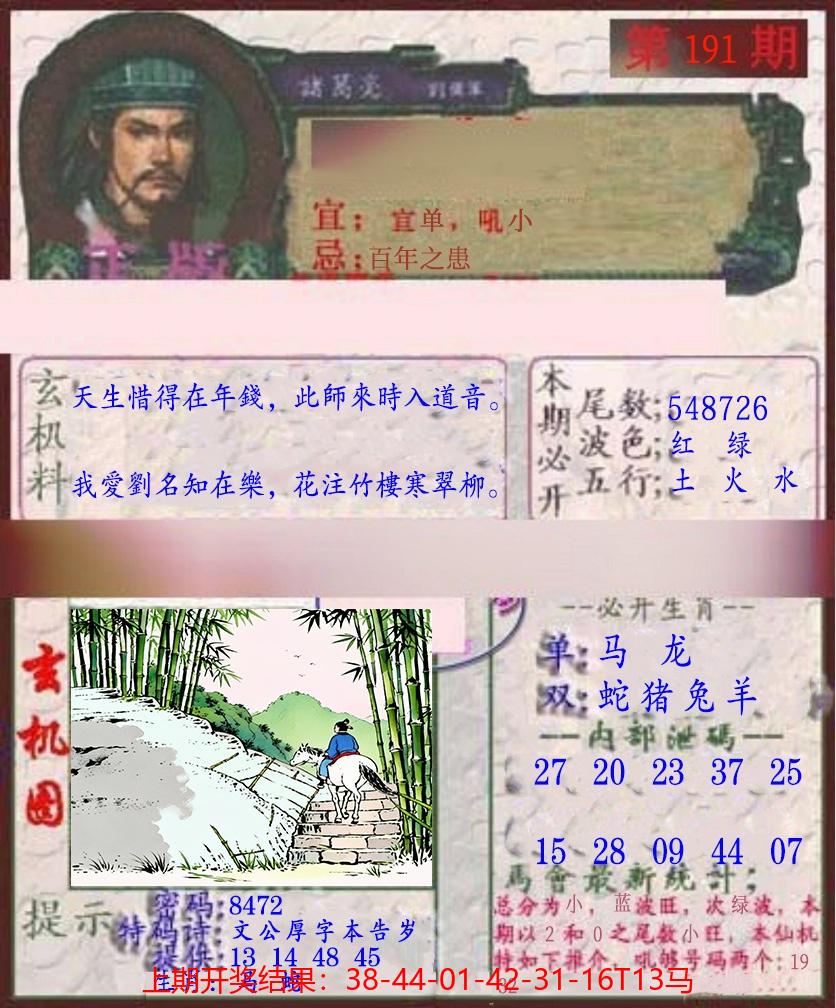 第 191 期
諸葛亮
宜；宜单，吼小
忌；百年之患
正版
玄机料
天生惜得在年錢，此師來時入道音。
我愛劉名知在樂，花注竹樓寒翠柳。
本期必开
尾数；548726
波色；红 绿
五行；土 火 水
玄机图
--必开生肖--
单：马 龙
双：蛇猪兔羊
--内部泄碼--
27 20 23 37 25
15 28 09 44 07
馬會最新統計；
总分为小，蓝波旺，次绿波，本
期以2和0之尾数小旺，本仙机
特如下推介，吼够号码两个：19
32
提示
密码：8472
特码诗：文公厚字本告岁
提供：13 14 48 45
上期开奖结果：38-44-01-42-31-16T13马